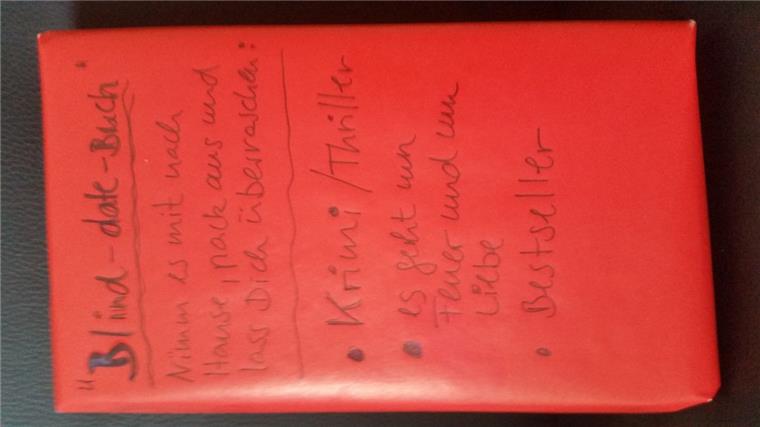 "Blind-date-Buch"
Nimm es mit nach
Hause, pack aus und
lass Dich überraschen:
• Krimi/Thriller
• es geht um
Feuer und um
Liebe
• Bestseller